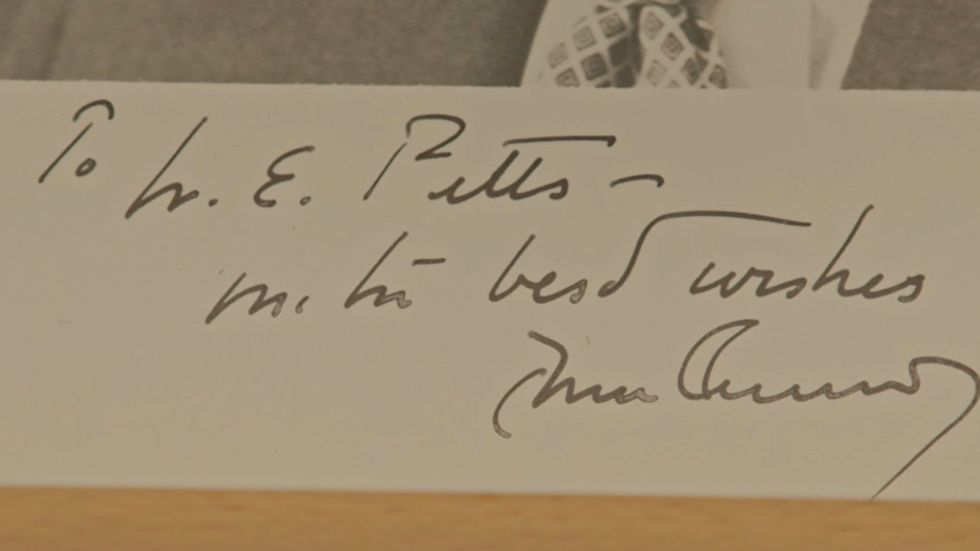 To Mr. E. Petts -
with best wishes